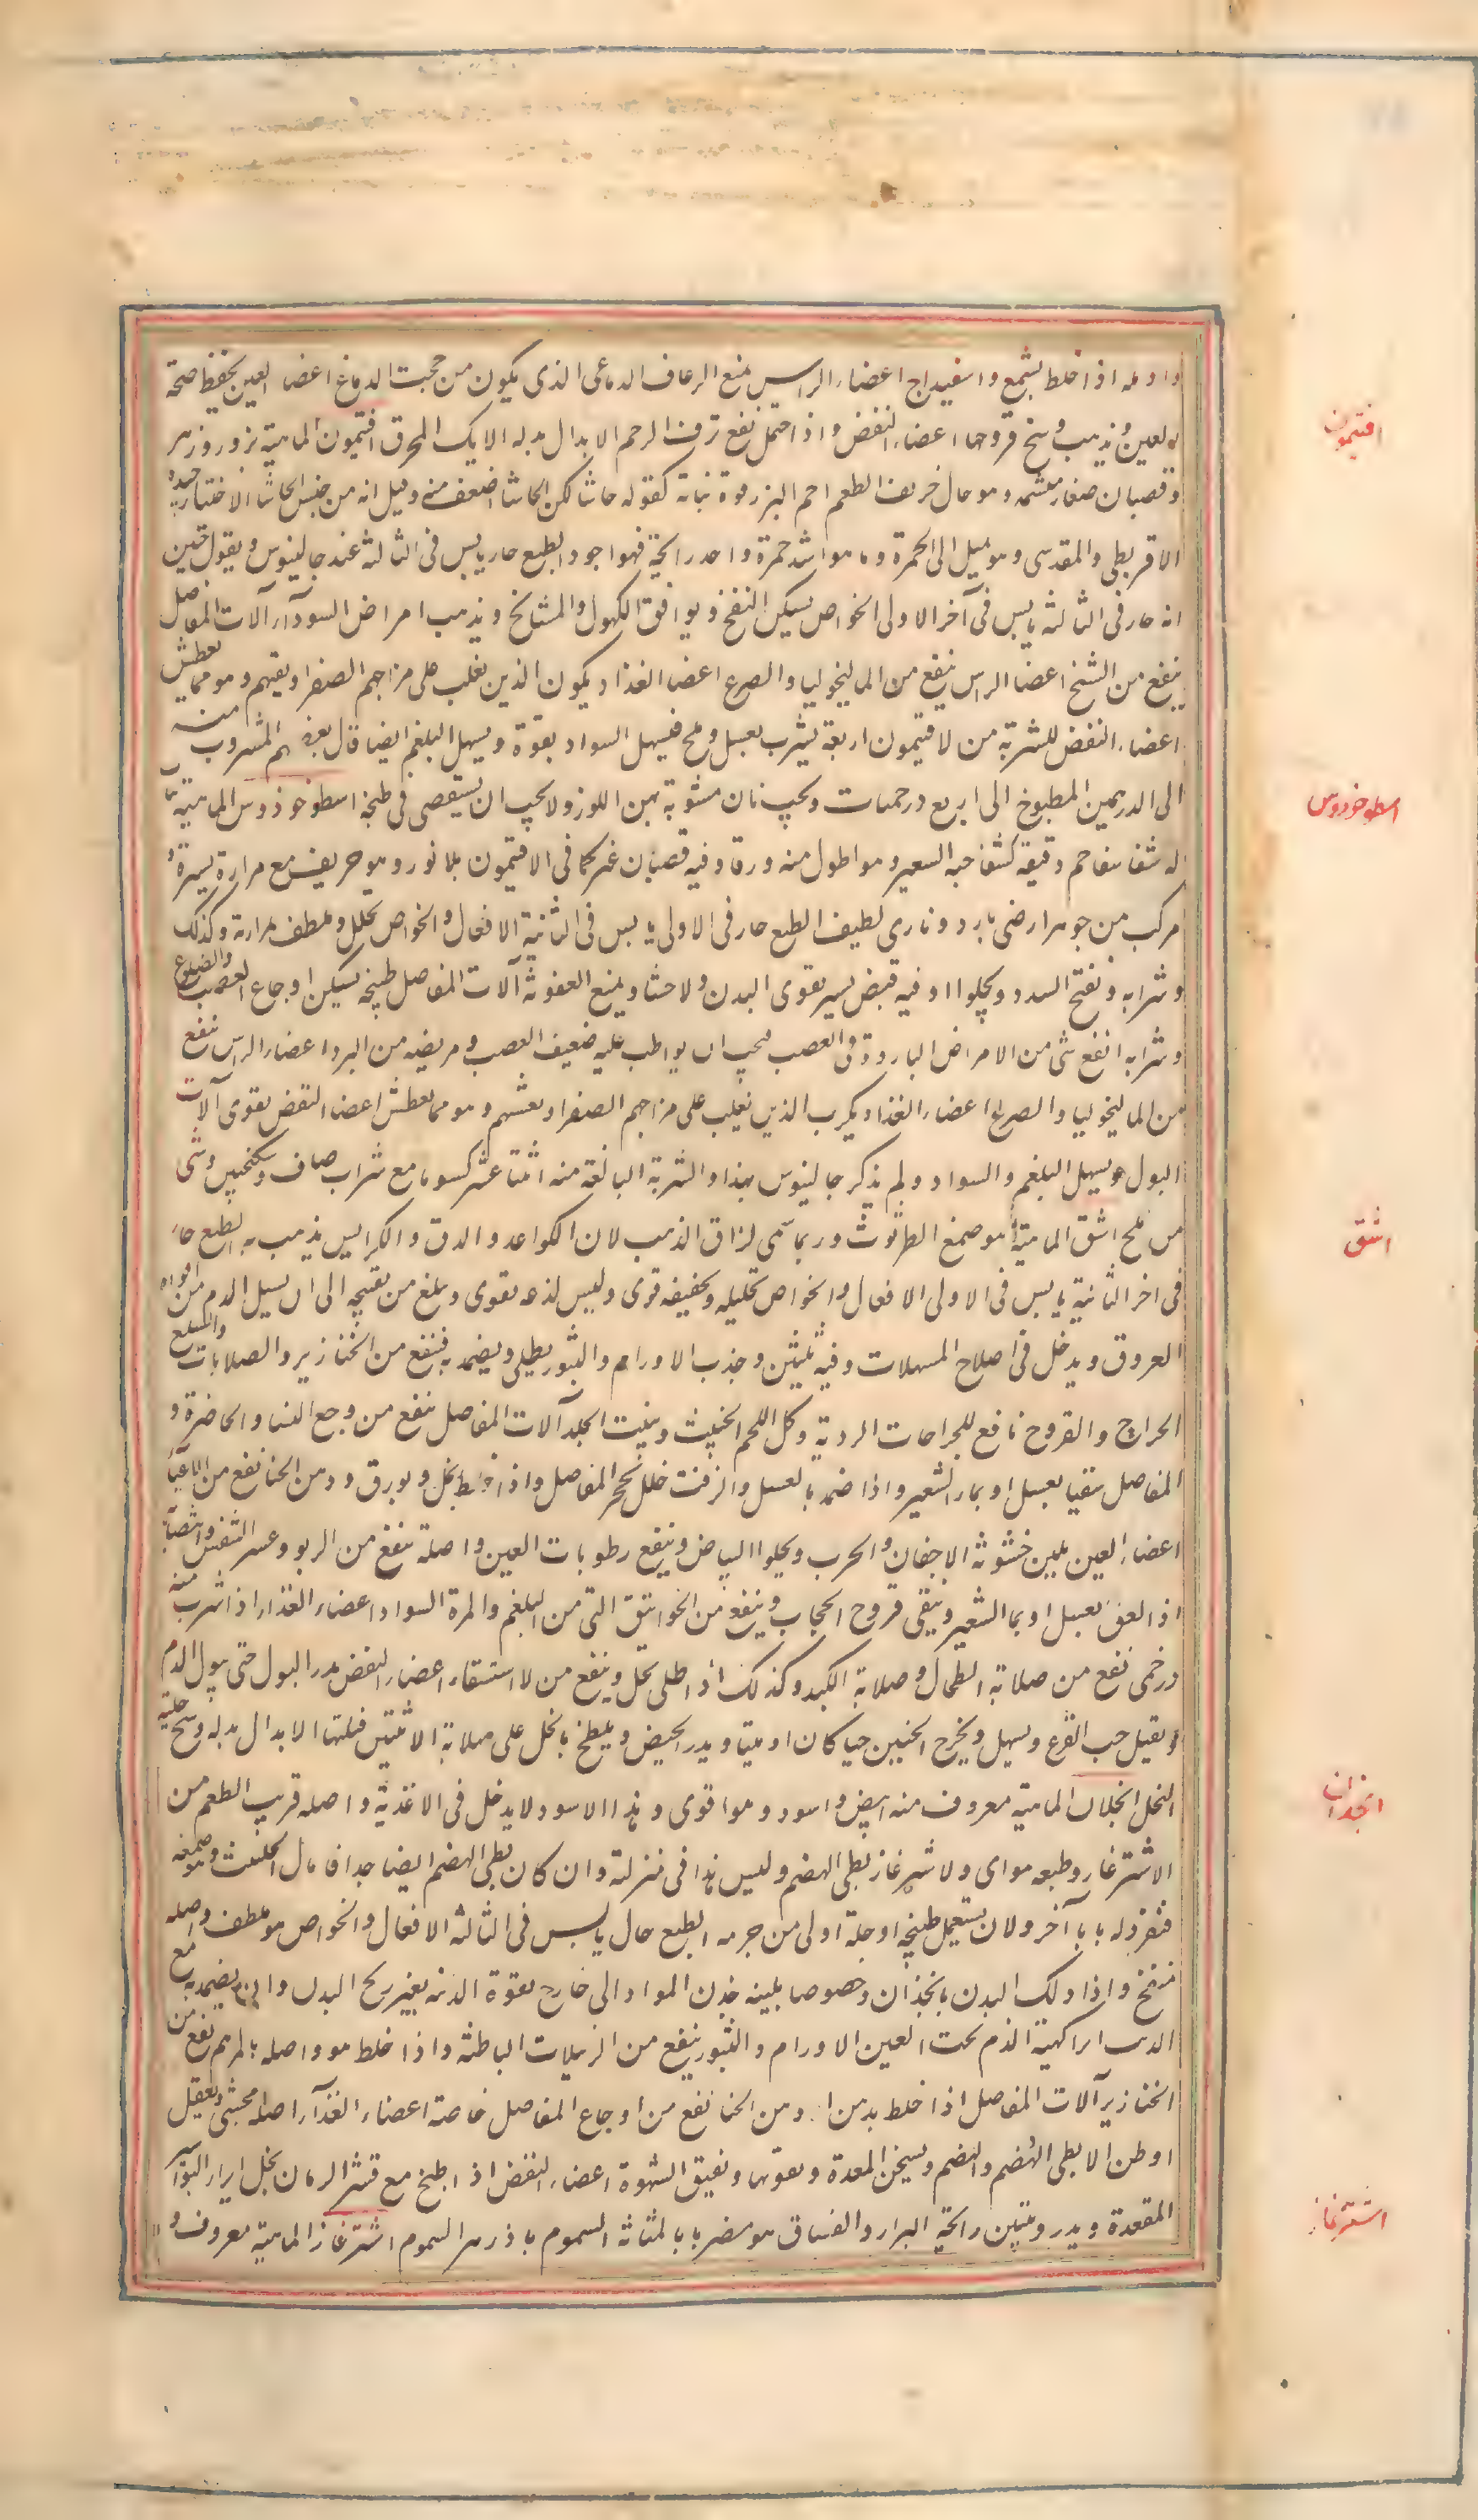 اذا خلط بشمع واسفيداج اعضاء الراس منع الرعاف الدماغى الذى يكون من حجب الدماغ اعضا العين يحفظ صحة
العين ويذهب وسخ قروحها اعضاء النفض واذا احتمل نفع نزف الرحم الابدال بدله الانك المحرق افتيمون الماهية بزور وزهر
وقضبان صغار وهو حاد حريف الطعم احمر البزر قوة نباته كقوة حاشا لكن الحاشا اضعف منه وقيل انه من جنس الحاشا الاختيار جيده
الاقريطى والمقدسى وهو يميل الى الحمرة وما هو اشد حمرة واحد رائحة فهو اجود الطبع حار يابس فى الثالثة عند جالينوس ويقول حنين
انه حار فى الثالثة يابس فى آخر الاولى الخواص يسكن النفخ ويوافق الكهول والمشايخ ويذهب امراض السوداء آلات المفاصل
ينفع من التشنج اعضا الراس ينفع من الماليخوليا والصرع اعضا الغذا ويكرب الذين يغلب على مزاجهم الصفرا ويقيهم وهو مما يعطش
اعضاء النفض الشربة من الافتيمون اربعة يشرب بعسل وملح فيسهل السوداء بقوة ويسهل البلغم ايضا قال بعضهم المشروب منه
الى الدرهمين المطبوخ الى اربع درخميات ويجب ان مشوبة بدهن اللوز ولا يجب ان يستقصى فى طبخه اسطوخودوس الماهية
له شفا دقيقة كشفا حبة الشعير وهو اطول منه ورقا وفيه قضبان غبر كما فى الافتيمون بلا نور وهو حريف مع مرارة يسيرة
مركب من جوهر ارضى بارد ونارى لطيف الطبع حار فى الاولى يابس فى الثانية الافعال والخواص يحلل ويلطف بمرارته وكذلك
وشرابه ويفتح السدد ويجلوا وفيه قبض يسير يقوى البدن والاحشا ويمنع العفونة آلات المفاصل طبيخه يسكن اوجاع العصب والضلوع
وشرابه انفع شى من الامراض الباردة فى العصب فيجب ان يواظب عليه ضعيف العصب ومريضه من البرد اعضاء الراس ينفع
من الماليخوليا والصرع اعضاء الغذاء ويكرب الذين يغلب على مزاجهم الصفرا ويغثيهم وهو مما يعطش اعضا النفض يقوى آلات
البول ويسهل البلغم والسواد ولم يذكر جالينوس هذا والشربة البالغة منه اثنتا عشر كسونا مع شراب صاف وسكنجبين وشى
من ملح اشق الماهية هو صمغ الطرثوث وربما سمى لزاق الذهب لان الكواغد والدق والكراريس يذهب به الطبع حار
فى اخر الثانية يابس فى الاولى الافعال والخواص تحليله وتجفيفه قوى وليس لذعه بقوى ويبلغ من تفتيحه الى ان يسيل الدم من افواه
العروق ويدخل فى اصلاح المسهلات وفيه تليين وجذب الاورام والبثور يطلى ويضمد به فينفع من الخنازير والصلابات والسلع
الجراح والقروح نافع للجراحات الردية وكل اللحم الخبيث وينبت الجلد آلات المفاصل ينفع من وجع النسا والخاصرة و
المفاصل سقيا بعسل او بماء الشعير واذا ضمد بالعسل والزفت حلل تحجر المفاصل واذا خلط بخل وبورق ودهن الحنا نفع من الاعيا
اعضاء العين يلين خشونة الاجفان والجرب ويجلوا البياض وينفع رطوبات العين واصلة ينفع من الربو وعسر النفس وانتصابه
اذا لعق بعسل او بما الشعير وينقى قروح الحجاب وينفع من الخوانيق التى من البلغم والمرة السواد اعضاء الغذاء اذا شرب منه
درخمى نفع من صلابة الطحال وصلابة الكبد وكذلك اذا طلى بخل وينفع من لاستسقاء اعضاء النفض مدر البول حتى يبول الدم
ويقتل حب القرع ويسهل ويخرج الجنين حيا كان او ميتا ويدر الحيض ويلطخ بالخل على صلابة الانثيين فيلينها الابدال بدله وسخ خلية
النحل انجدان الماهية معروف منه ابيض واسود وهو اقوى وهذا الاسود لا يدخل فى الاغذية واصله قريب الطعم من
الاشترغاز وطبعه هواى والاشترغاز بطى الهضم وليس هذا فى منزلته وان كان بطى الهضم ايضا جدا فاما الحلتيت وهو صمغه
فنفرد له بابا آخر ولان يستعمل طبيخه او خله اولى من جرمه الطبع حار يابس فى الثالثة الافعال والخواص هو ملطف واصله
منفخ واذا دلك البدن بانجذان وخصوصا بلبنه جذب المواد الى خارج بقوة الزينة يغير ريح البدن وان يضمد به مع
الزيت ابرا كهبة الدم تحت العين الاورام والبثور ينفع من الدبيلات الباطنة واذا خلط هو واصله بالمراهم نفع من
الخنازير آلات المفاصل اذا خلط بدهن او دهن الحنا نفع من اوجاع المفاصل خاصة اعضاء الغذآء اصله مجشى ويعقل
البطن الا بطى الهضم والهضم ويسخن المعدة ويقويها ويفتق الشهوة اعضاء النفض اذ اطبخ مع قشر الرمان بخل ابرا البواسير
المقعدة ويدر وينتن رائحة البراز والفساء وهو مضر بالمثانة السموم باذزهر السموم اشترغاز الماهية معروف و
افتيمون
اسطوخودوس
اشق
انجدان
اشترغاز